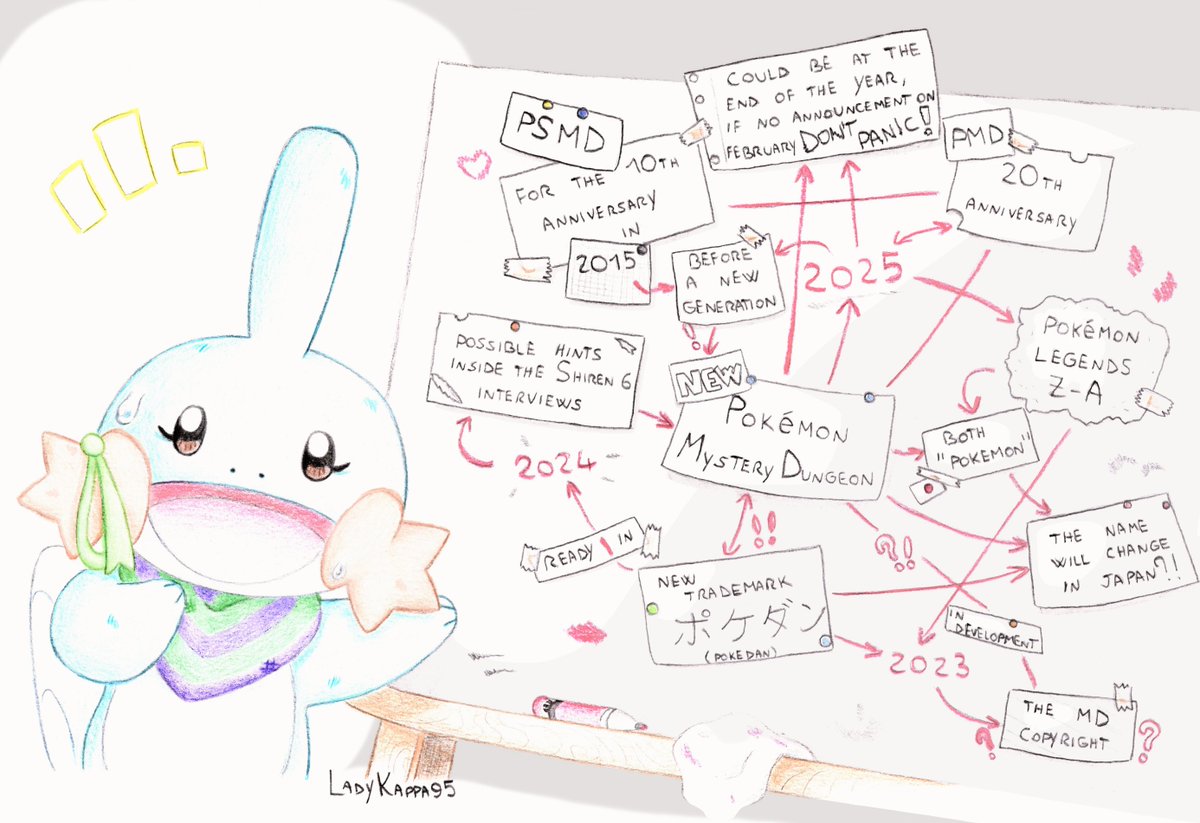 COULD BE AT THE
END OF THE YEAR,
IF NO ANNOUNCEMENT ON
FEBRUARY DON'T PANIC!
PSMD
FOR THE 10TH
ANNIVERSARY
IN
2015
PMD
20TH
ANNIVERSARY
BEFORE
A NEW
GENERATION
2025
POKéMON
LEGENDS
Z-A
POSSIBLE HINTS
INSIDE THE SHIREN 6
INTERVIEWS
!!
NEW
POKéMON
MYSTERY DUNGEON
BOTH
"POKEMON"
2024
READY IN
!!
?!
THE NAME
WILL CHANGE
IN JAPAN?!
NEW
TRADEMARK
ポケダン
(POKEDAN)
IN
DEVELOPMENT
2023
THE MD
COPYRIGHT
?
?
LADYKAPPA95